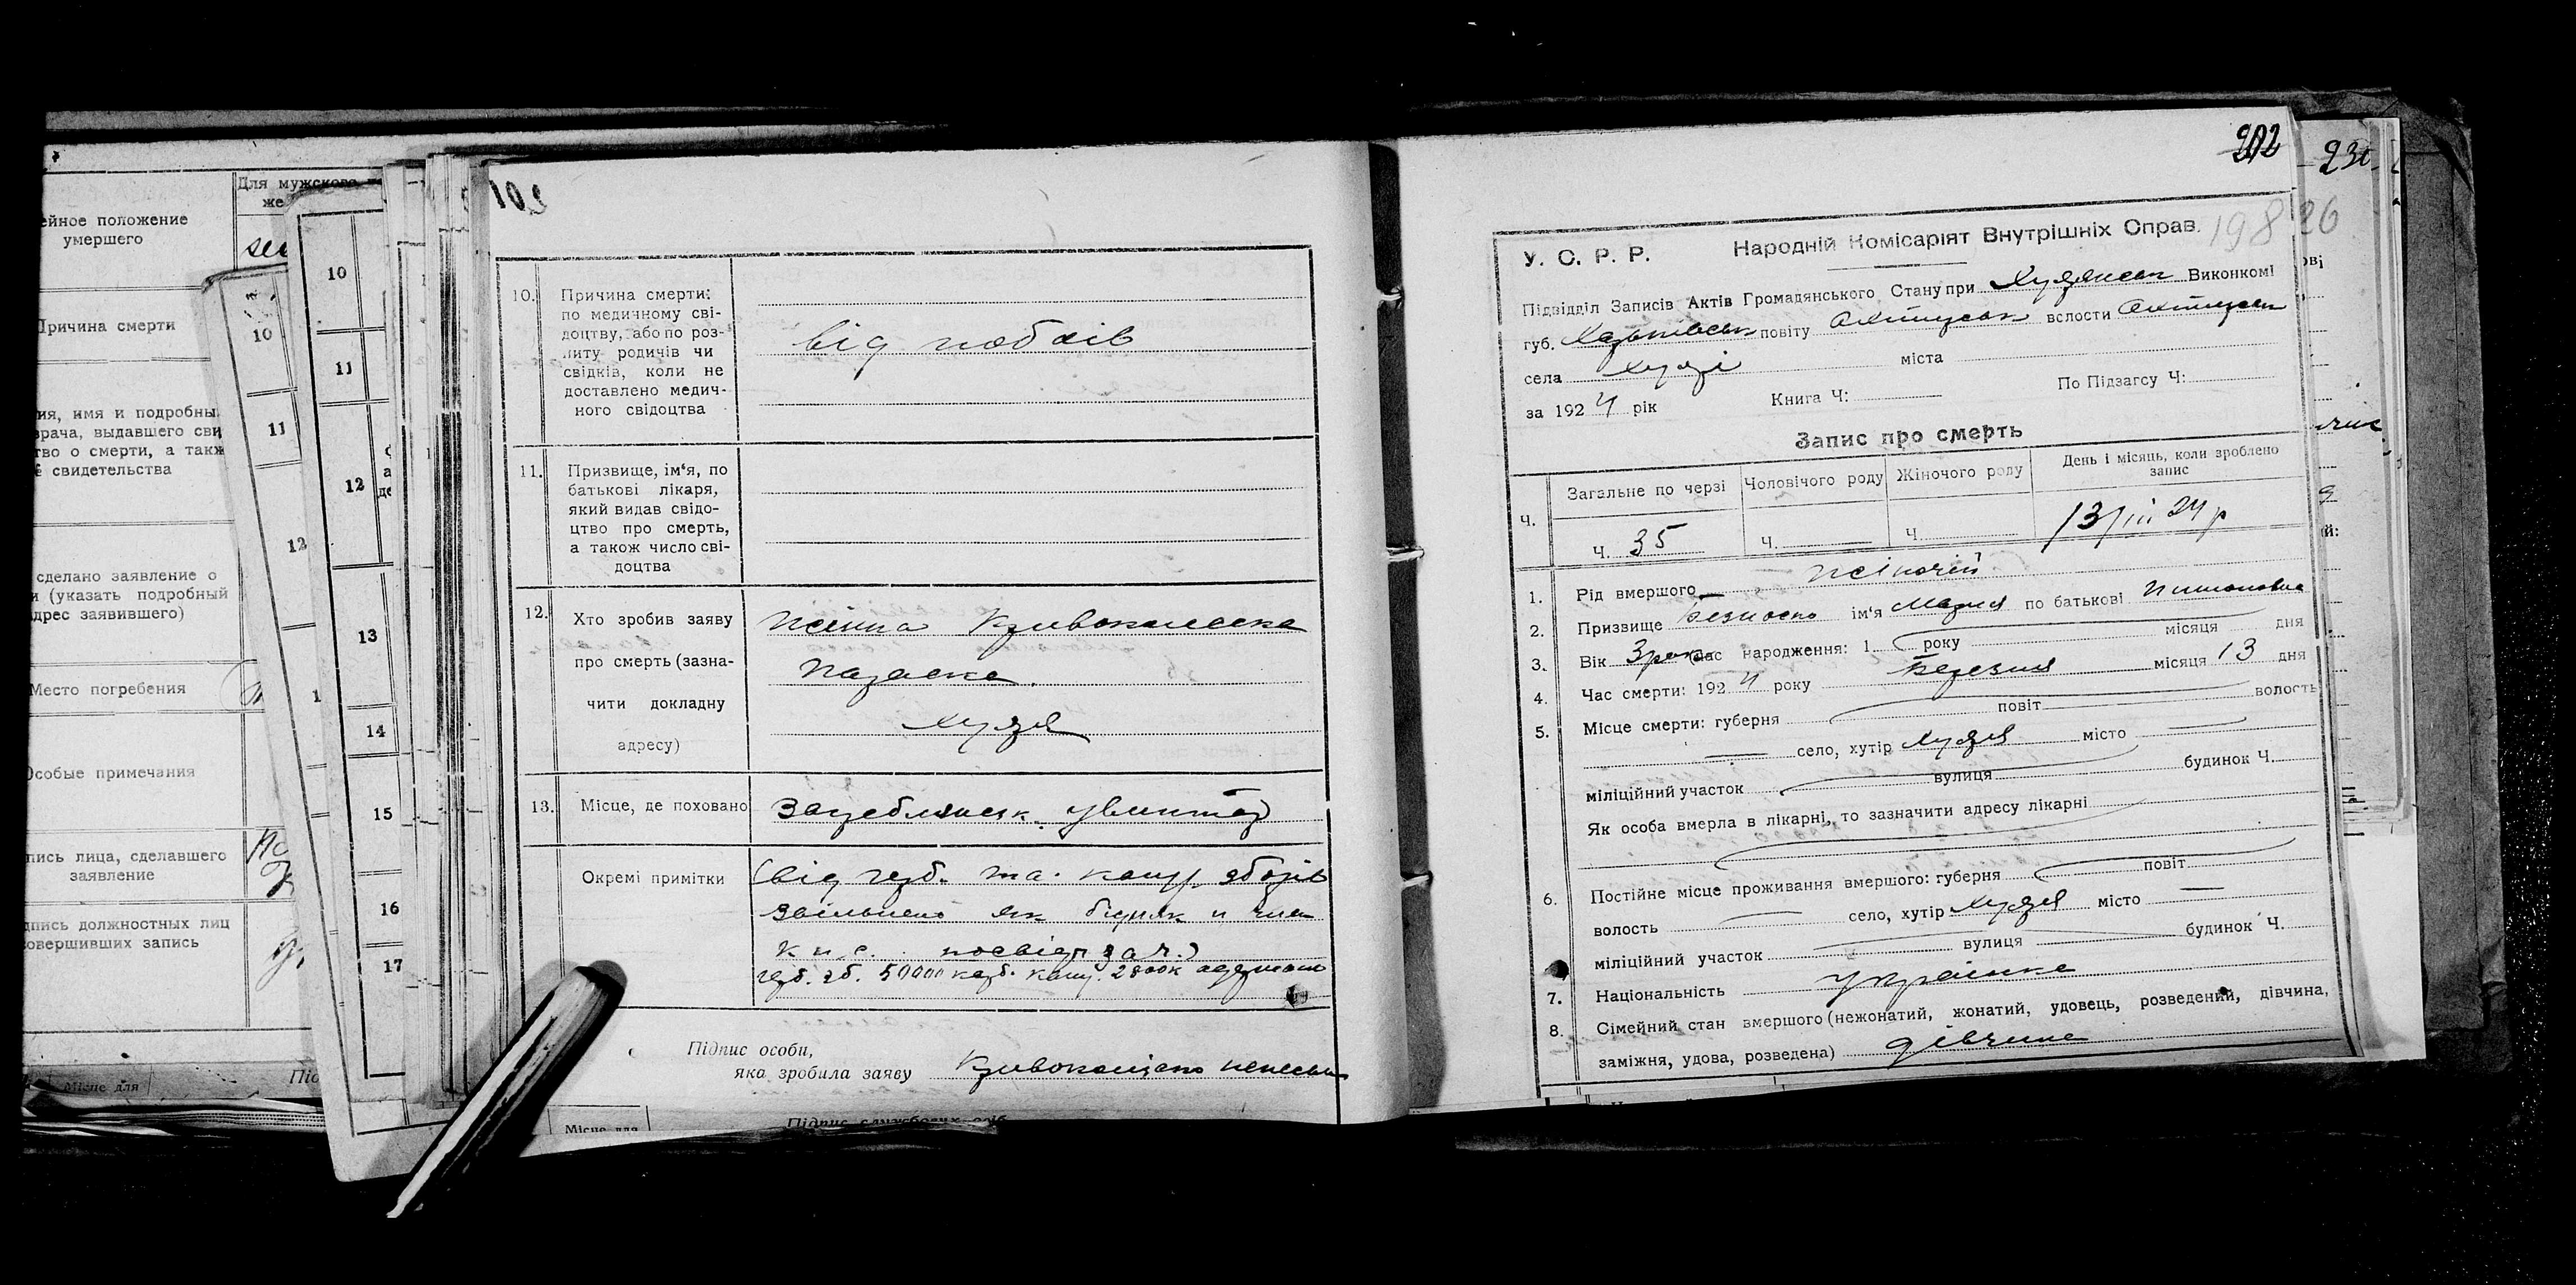 Для мужского
же
ейное положение
умершего
Причина смерти
ия, имя и подробны
врача, выдавшего сви
тво о смерти, а такж
свидетельства
сделано заявление о
и (указать подробный
дрес заявившего)
Место погребения
Особые примечания
пись лица, сделавшего
заявление
дпись должностных лиц
совершивших запись
Місце для
10
11
12
1
10
11
12
13
14
15
16
17
10. Причина смерти:
по медичному сві-
доцтву, або по роз-
питу родичів чи
свідків, коли не
доставлено медич-
ного свідоцтва
від побоів
11. Призвище, ім'я, по
батькові лікаря,
який видав свідо-
цтво про смерть,
а також число сві-
доцтва
12. Хто зробив заяву
про смерть (зазна-
чити докладну
адресу)
Параска
Хухря
13. Місце, де поховано
Окремі примітки
(від герб. та канц. зборів
звільнено як бідняк и член
к н с. посвід за ч.)
герб. зб. 50000 карб. канц. 2800к одержано
Підпис особи,
яка зробила заяву
Місце для
Підпис службових осіб
202
230
198
26
У. С. Р. Р. Народній Комісаріят Внутрішніх Справ.
Підвідділ Записів Актів Громадянського Стану при Хухрянськ Виконкомі
губ. Харківськ повіту Охтирськ вслости Охтирськ
села Хухрі міста
за 1924 рік Книга Ч: По Підзагсу Ч:
Запис про смерть
Ч. Загальне по черзі Чоловічого роду Жіночого роду День і місяць, коли зроблено
запис
Ч. 35 Ч. Ч. 13/III 24 р
1. Рід вмершого жіночій
2. Призвище Безноско ім'я Мария по батькові
3. Вік 3 роки Час народження: 1 року місяця дня
4. Час смерти: 1924 року Березня місяця 13 дня
5. Місце смерти: губерня повіт волость
село, хутір Хухря місто
міліційний участок вулиця будинок Ч.
Як особа вмерла в лікарні, то зазначити адресу лікарні
6. Постійне місце проживання вмершого: губерня повіт
волость село, хутір Хухря місто
міліційний участок вулиця будинок Ч.
7. Національність українка
8. Сімейний стан вмершого (нежонатий, жонатий, удовець, розведений, дівчина,
заміжня, удова, розведена) дівчина